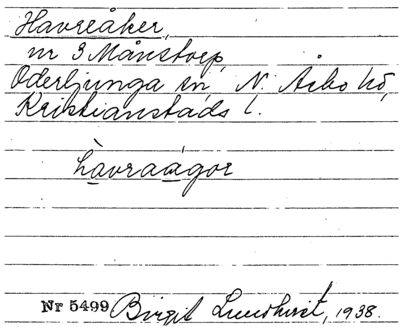 Havreåker,
nr 3 Månstorp,
Oderljunga sn, N. Åsbo hd,
Kristianstads l.
hàvraágor
Nr 5499 Birgit Lundqvist, 1938.